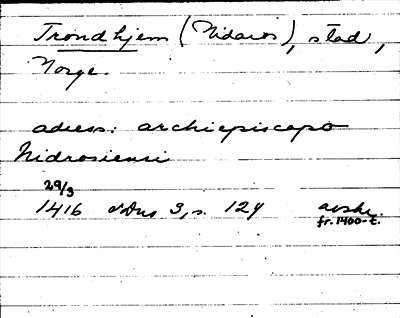 Trondhjem (Nidaros), stad,
Norge.
adress: archiepiscopo
Nidrosiensi
29/3
1416 SDns 3, s. 124 avskr.
fr. 1400-t.